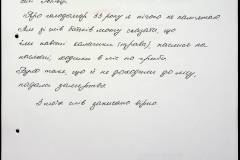 Про голодомор 33 року я нічого не пам'ятаю.
Але зі слів батьків можу сказати, що
їли навіть калачики (трава), пасльон на
ходили в ліс по гриби.
Було таке, що й не доходили до лісу,
падали замертво.
З моїх слів записано вірно.